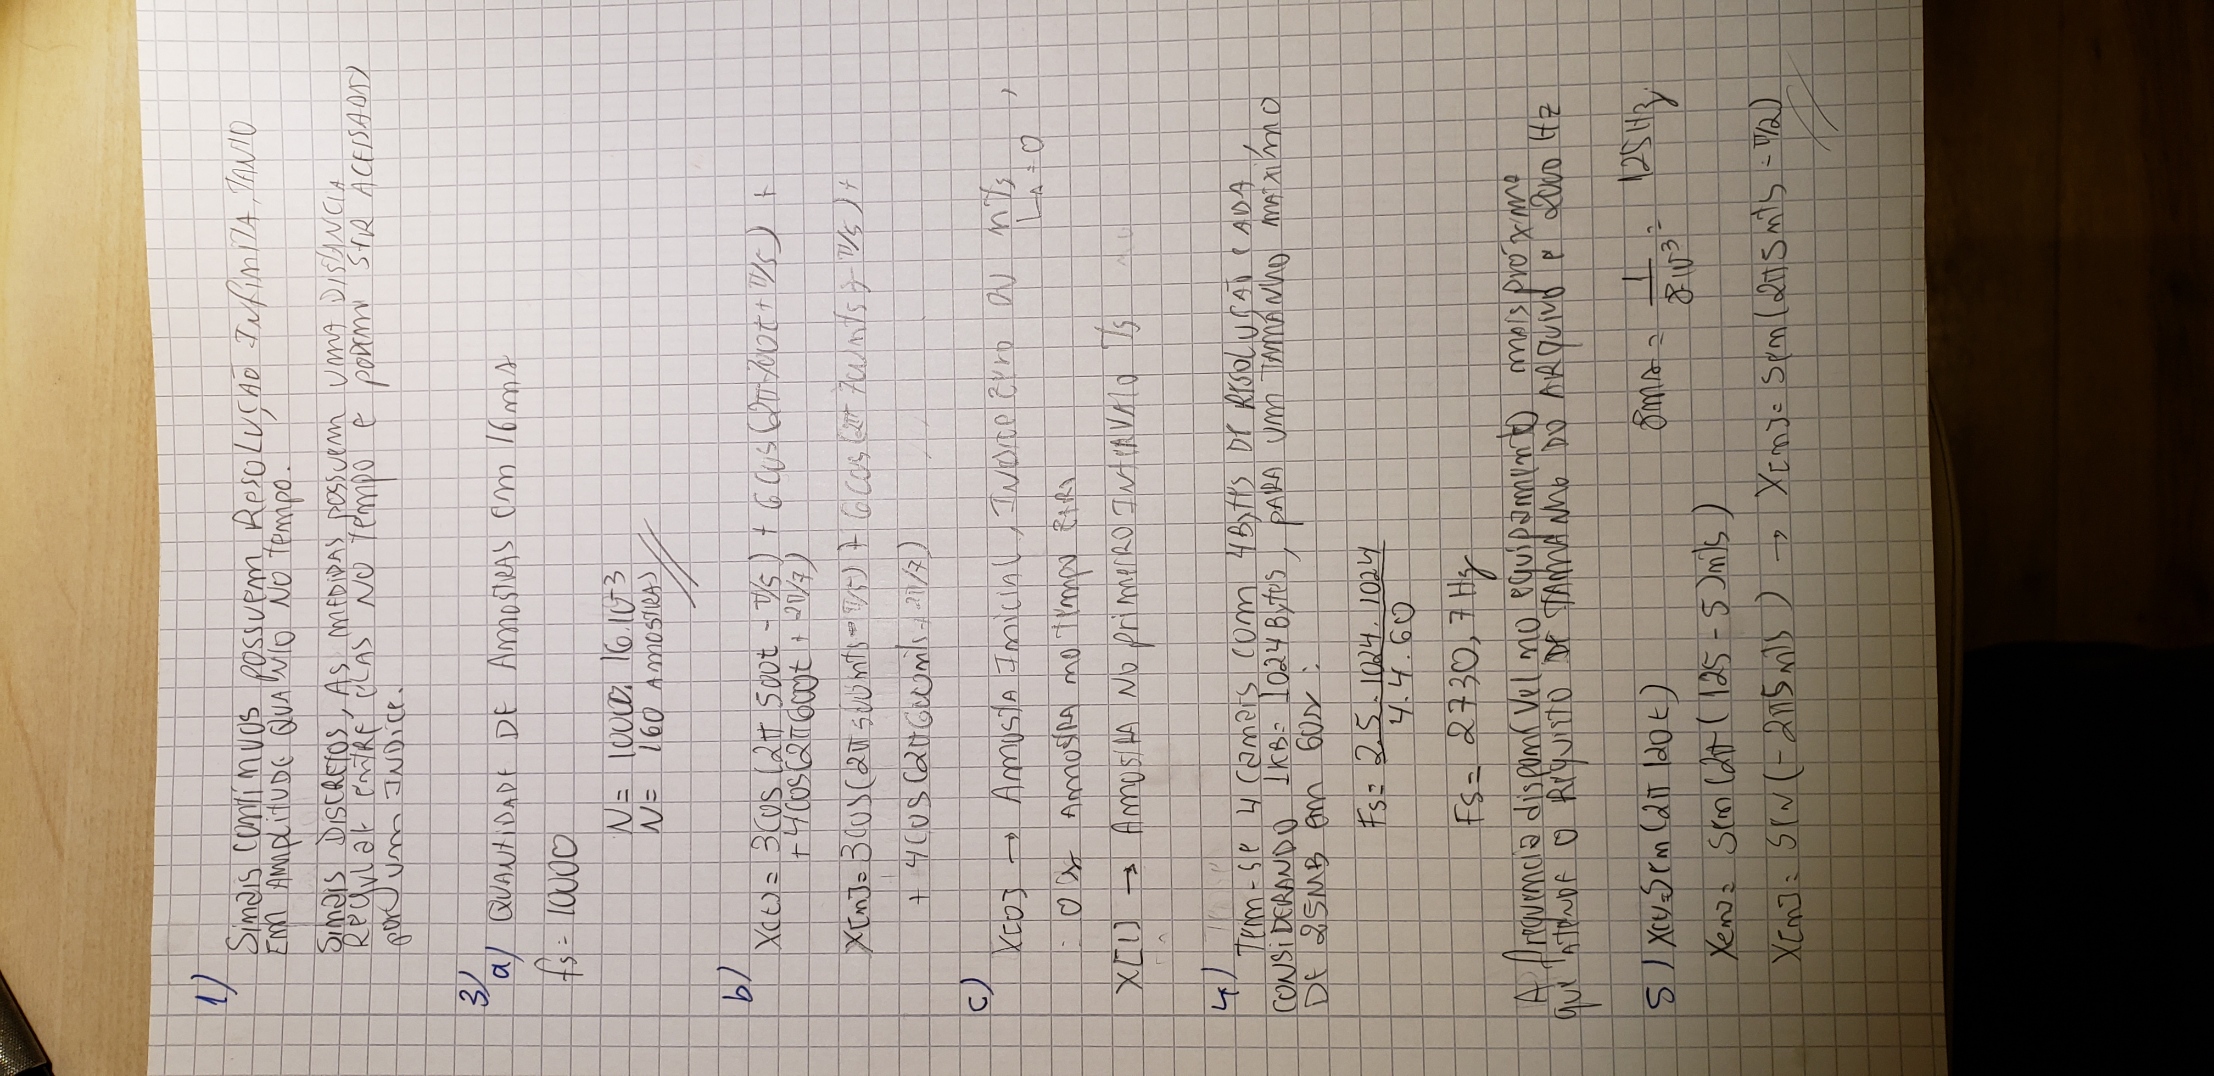 1)
Sinais contínuos possuem Resolução Infinita, TANTO
Em Amplitude QUANTO NO Tempo.
Sinais DISCRETOS, As MEDIDAS possuem uma DISTÂNCIA
Regular entre elas no tempo e podem ser ACESSADAS
por um Indice.
3)
a) QUANTIDADE DE AmosTRAS em 16ms
fs = 10000
N = 10000. 16.10-3
N = 160 AmosTRAS
b)
X(t) = 3cos(2π 500t - π/5) + 6cos(2π700t + π/5) +
+ 4cos(2π600t + 2π/7)
X[n] = 3cos(2π500nTs - π/5) + 6cos(2π 700nTs + π/5) +
+ 4cos(2π600nTs + 2π/7)
c)
X[0] → Amosta Inicial, Indice Zero ou nTs,
n=0
AmosTRA no tempo
X[1] → AmosTRA No primeiro INTERVALO Ts
4)
Tem-se 4 canais com 4Bytes DE RESOLUÇÃO CADA,
CONSIDERANDO 1KB = 1024 Bytes, PARA um TAMANHO máximo
DE 2,5MB em 60s:
Fs = 2.5 . 1024 . 1024
4.4.60
Fs = 2730,7 Hz
A frequencia disponível no equipamento mais próxima
que ATENDE O REQUISTO DE TAMANHO DO ARQUIVO é 2000 Hz
5) X(t)=Sen(2π 120t) 8ms = 1/8.10-3 = 125Hz
X[n] = Sen(2π(125 - 5)nTs)
X[n] = SEN(-2π5nTs) → X[n] = Sen(2π5nTs - π/2)